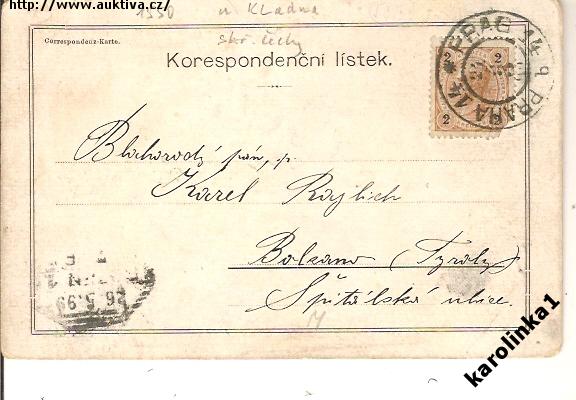 http://www.auktiva.cz/
1330 u Kladna
stř. Čechy
Correspondenz-Karte.
Korespondenční lístek.
2 2
2
PRAG 14
PRAHA 14
Blahorodý pán, p.
Karel Rajlich
Bolzano (Tyroly)
Špitálská ulice.
26.5.99
karolinka1